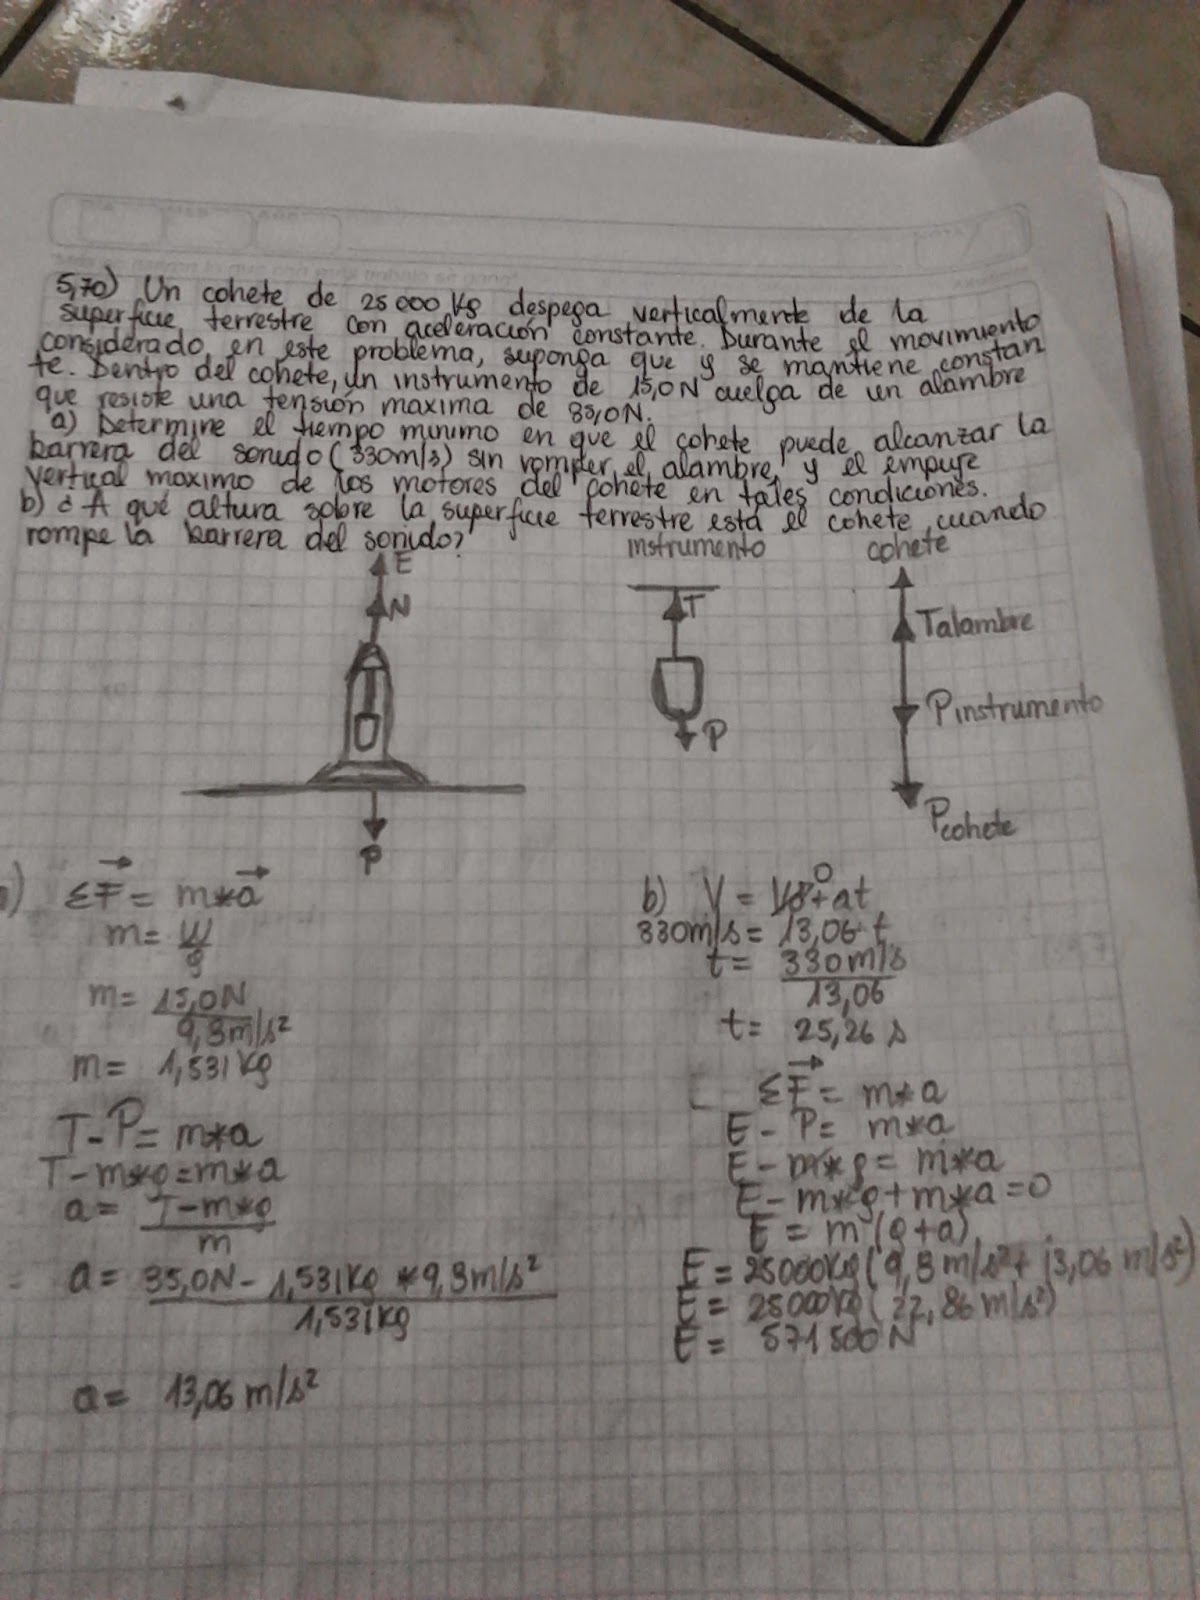 5,70) Un cohete de 25000 Kg despega verticalmente de la
superficie terrestre con aceleración constante. Durante el movimiento
considerado en este problema, suponga que g se mantiene constan
te. Dentro del cohete, un instrumento de 15,0N cuelga de un alambre
que resiste una tensión maxima de 35,0N.
a) Determine el tiempo minimo en que el cohete puede alcanzar la
barrera del sonido (330m/s) sin romper el alambre, y el empuje
vertical maximo de los motores del cohete en tales condiciones.
b) ¿A qué altura sobre la superficie terrestre está el cohete cuando
rompe la barrera del sonido?
instrumento
cohete
E
N
P
T
P
Talambre
Pinstrumento
Pcohete
a) ΣF = m*a
m= W/g
m= 15,0N/9,8m/s²
m= 1,531Kg
T-P=m*a
T-m*g=m*a
a= T-m*g/m
a= 35,0N - 1,531Kg *9,8m/s²/1,531Kg
a= 13,06 m/s²
b) V = V0+at 0
330m/s= 13,06 t
t= 330m/s/13,06
t= 25,26 s
ΣF= m*a
E - P= m*a
E-m*g= m*a
E-m*g+m*a=0
E = m (g+a)
E= 25000Kg(9,8 m/s²+ 13,06 m/s²)
E= 25000Kg(22,86 m/s²)
E= 571500N